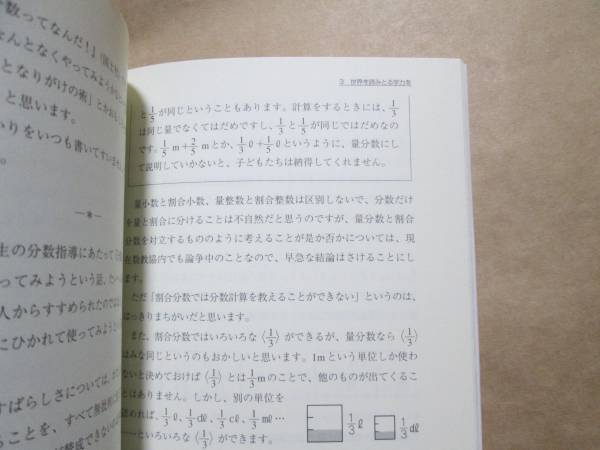 3 世界を読みとる学力を
と1/5が同じということもあります。計算をするときには、1/3
は同じ量でなくてはだめですし、1/3と1/5が同じではだめなの
です。1/5m+2/5mとか、1/3ℓ+1/5ℓというように、量分数にし
て説明していかないと、子どもたちは納得してくれません。
量小数と割合小数、量整数と割合整数は区別しないで、分数だけ
を量と割合に分けることは不自然だと思うのですが、量分数と割合
分数を対立するもののように考えることが是か否かについては、現
在数教協内でも論争中のことなので、早急な結論はさけることにし
ます。
ただ「割合分数では分数計算を教えることができない」というのは、
はっきりまちがいだと思います。
また、割合分数ではいろいろな〈1/3〉ができるが、量分数なら〈1/3〉
はみな同じというのもおかしいと思います。1mという単位しか使わ
ないと決めておけば〈1/3〉とは1/3mのことで、他のものが出てくるこ
とはありません。しかし、別の単位を
認めれば、1/3ℓ、1/3dℓ、1/3cℓ、1/3mℓ…
——といろいろな〈1/3〉ができます。
1/3ℓ 1/3dℓ
数ってなんだ！』
なんとなくやってみようか
となりがけの術」とか
と思います。
いりをいつも書いてすいません
。
—*—
生の分数指導にあたって
ってみようという話。
人からすすめられたのでは
にひかれて使ってみよう
すばらしさについては、
ることを、すべて無批判に